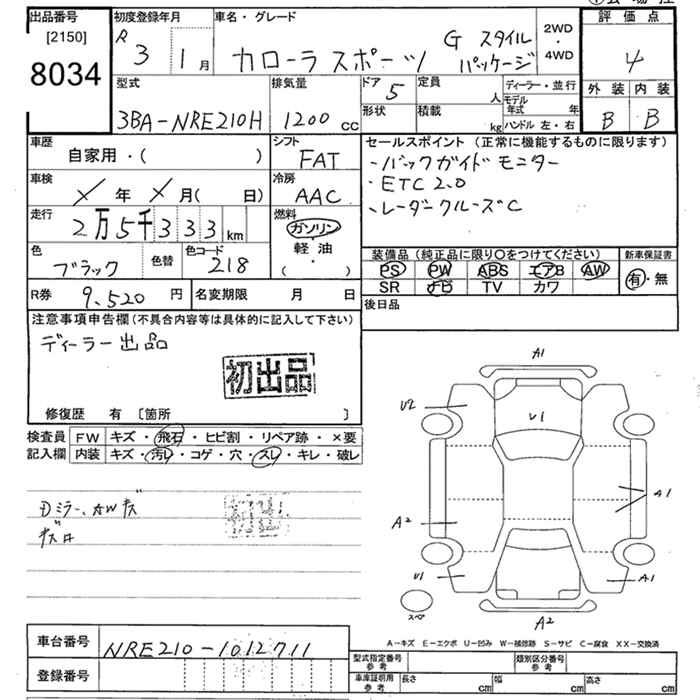 出品番号 初度登録年月 車名・グレード 2WD・4WD 評価点
[2150] R 3 1月 カローラスポーツ G スタイルパッケージ 4
8034
型式 排気量 ドア 5 定員 人 ディーラー・並行 外装 内装
3BA-NRE210H 1200 cc 形状 積載 kg モデル年式 年 B B
ハンドル 左・右
車歴 自家用・( ) シフト FAT
車検 年 月( 日) 冷房 AAC
走行 2万5千333 km 燃料 ガソリン・軽油・( )
色 ブラック 色替 色コード 218
R券 9,520 円 名変期限 月 日
セールスポイント (正常に機能するものに限ります)
・バックガイドモニター
・ETC 2.0
・レーダークルーズC
装備品 (純正品に限り○をつけてください) 新車保証書
PS PW ABS エアB AW 有・無
SR ナビ TV カワ
後日品
注意事項申告欄 (不具合内容等は具体的に記入して下さい)
ディーラー出品
初出品
修復歴 有 〔箇所 〕
検査員 FW キズ・飛石・ヒビ割・リペア跡・×要
記入欄 内装 キズ・汚レ・コゲ・穴・スレ・キレ・破レ
Dミラー、AWキズ
キズ有
A1
U2
U1
A1
A2
U1
A1
スペア
A2
A-キズ E-エクボ U-凹み W-補修跡 S-サビ C-腐食 XX-交換済
車台番号 NRE210-1012711
登録番号
型式指定番号 参考 類別区分番号 参考
車庫証明用 参考 長さ cm 幅 cm 高さ cm